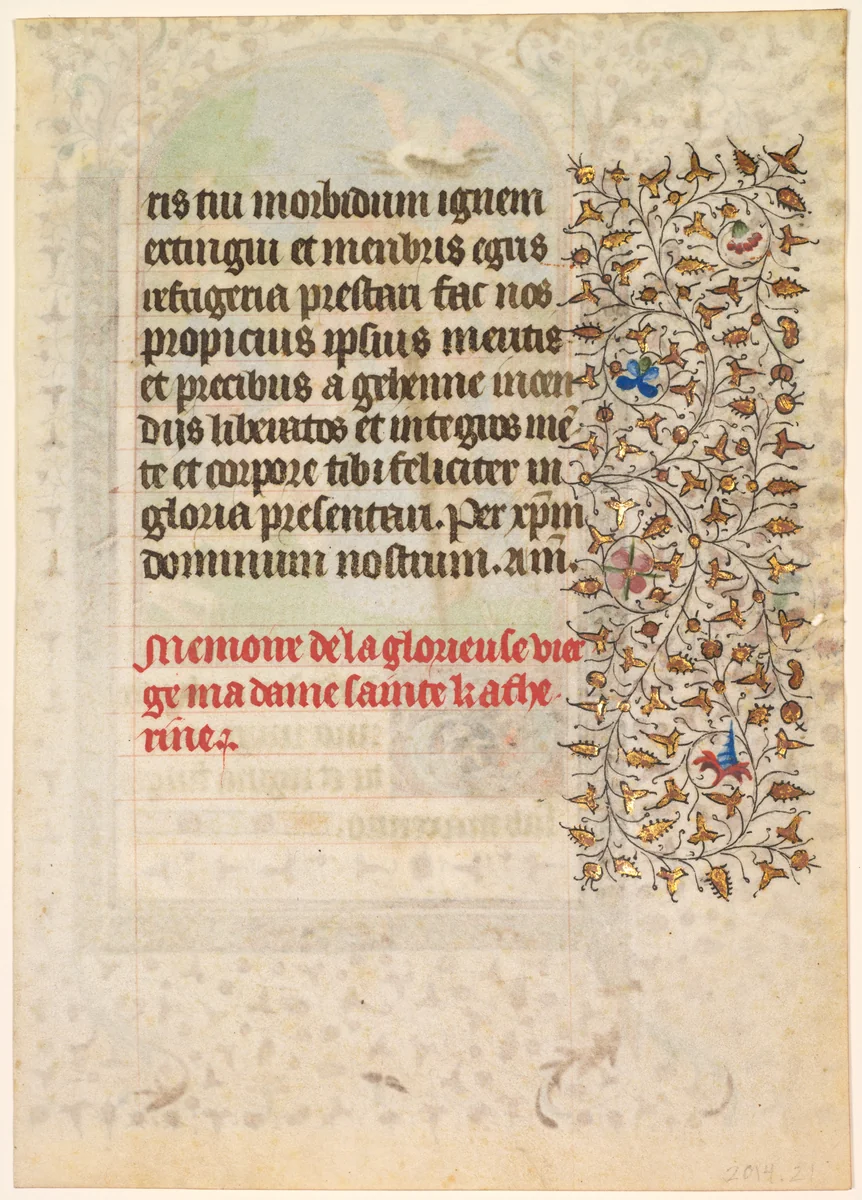 ris tui morbidum ignem
extingui et menbris egris
refrigeria prestari fac nos
propicius ipsius meritis
et precibus a gehenne incen
dijs liberatos et integros mē
te et corpore tibi feliciter in
gloria presentari. Per xp̄m
dominum nostrum. Am̄.
Memoire de la glorieuse vier
ge ma dame sainte kathe
rine.
2014.21